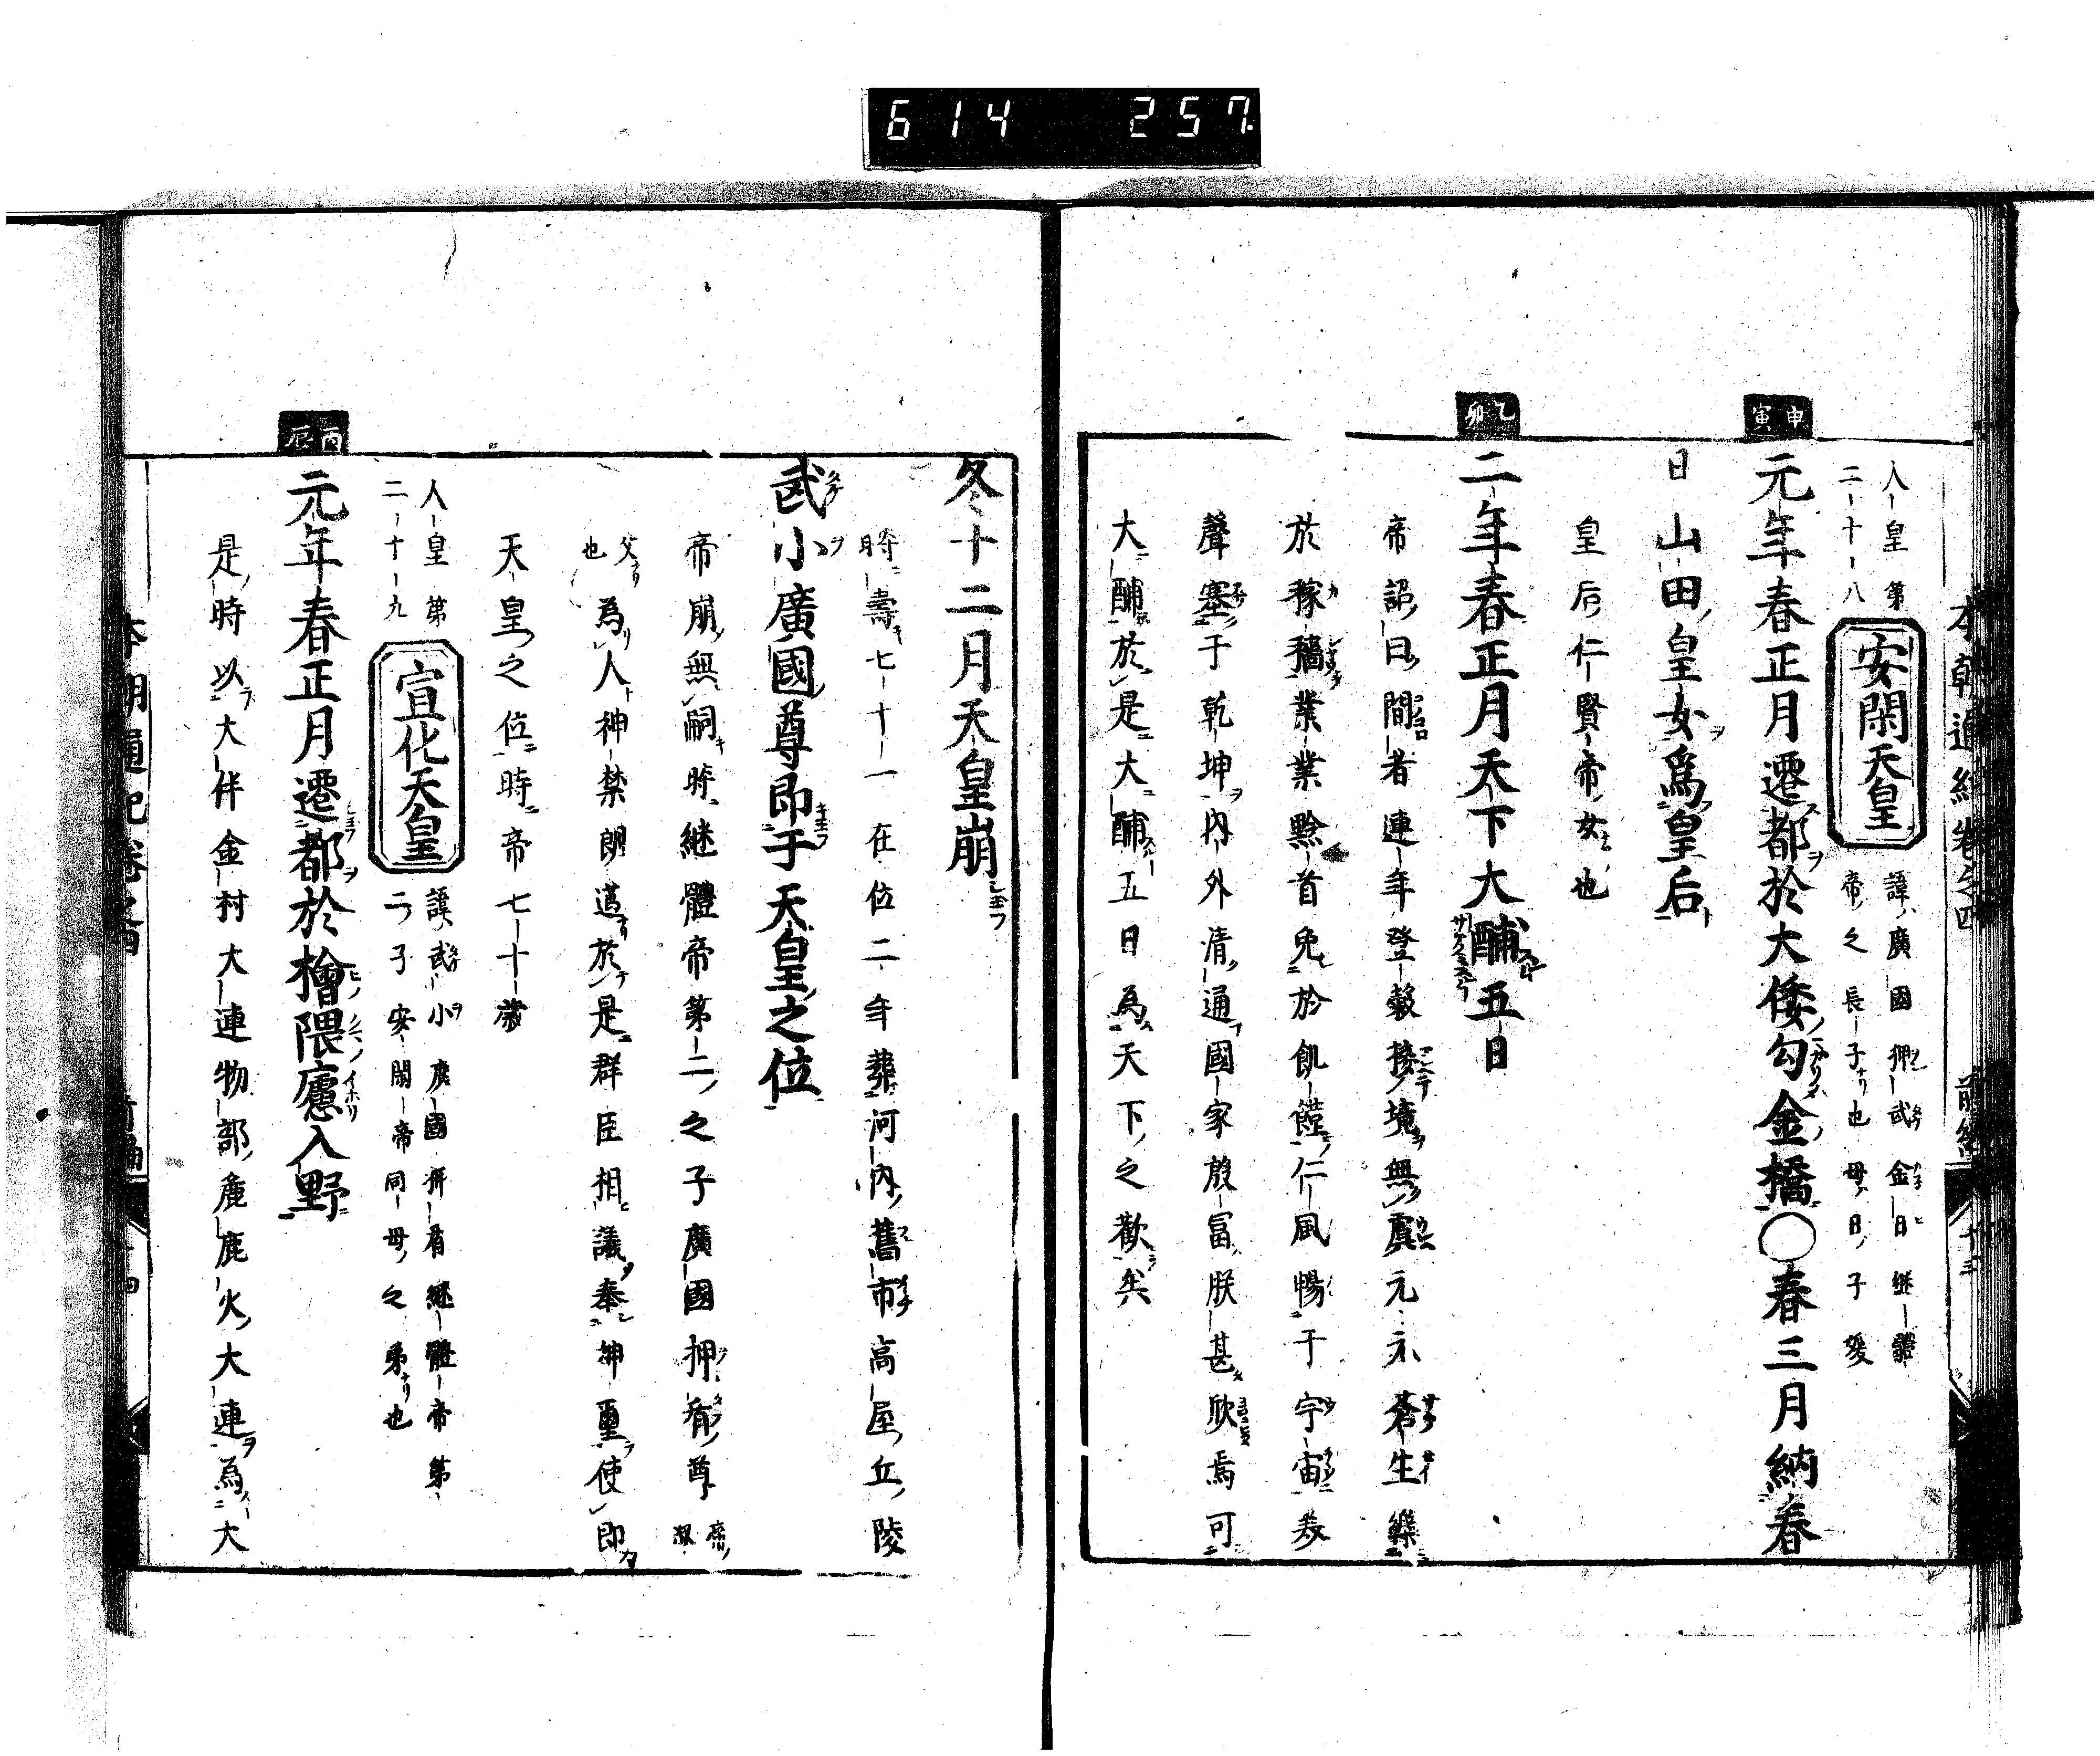 614 257
本朝通紀卷之四 前編 十三
人皇第二十八
安閑天皇
諱廣國押武金日継體
帝之長子也母曰子媛
甲寅
元年春正月遷都於大倭勾金橋○春三月納春
日山田皇女爲皇后
皇后仁賢帝女也
乙卯
二年春正月天下大酺五日
帝詔曰間者連年登穀接境無虞元元蒼生樂
於稼穡業業黔首免於飢饉仁風暢于宇宙美
聲塞于乾坤內外清通國家殷富朕甚欣焉可
大酺於是大酺五日為天下之歡矣
冬十二月天皇崩
時壽七十一在位二年葬河內舊市高屋丘陵
武小廣國尊即于天皇之位
帝崩無嗣時継體帝第二之子廣國押盾尊
也為人神襟朗邁於是群臣相議奉神璽使即
天皇之位時帝七十歲
人皇第二十九
宣化天皇
諱武小廣國押盾継體帝第
二子安閑帝同母之弟也
丙辰
元年春正月遷都於檜隈廬入野
是時以大伴金村大連物部麁鹿火大連為大
本朝通紀卷之四 前編 十四